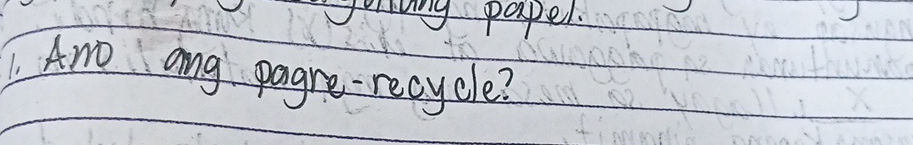 papel.
1. Ano ang pagre-recycle?